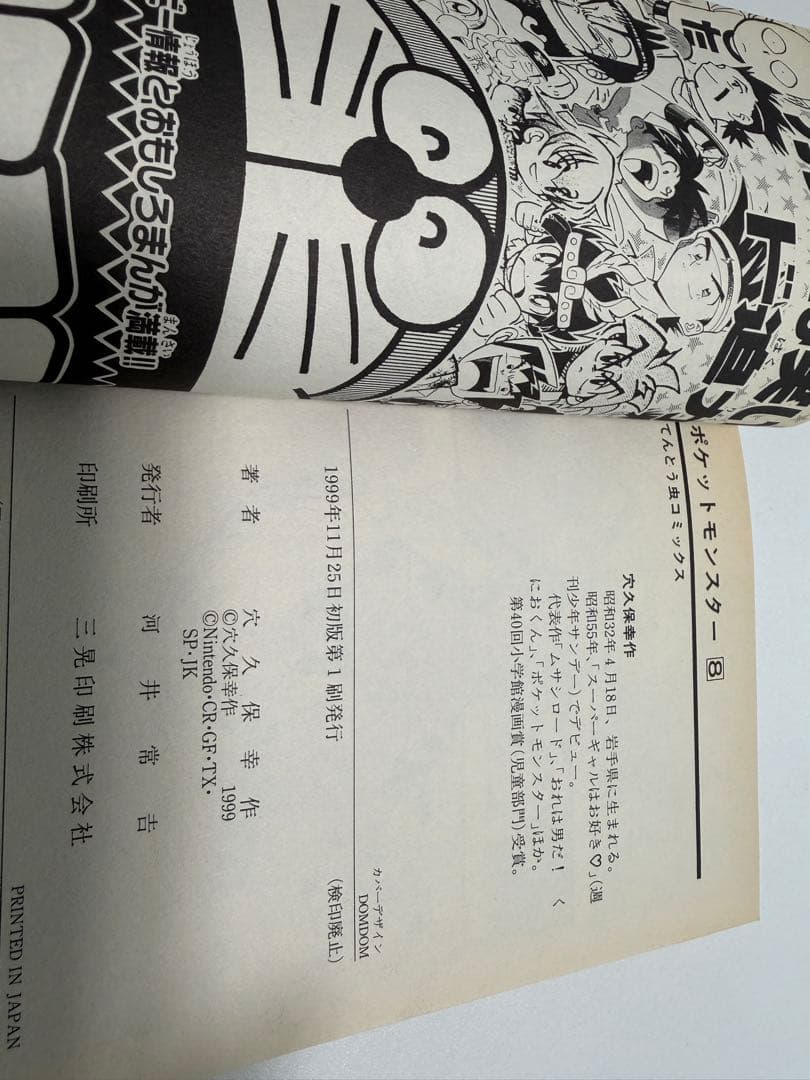 ポケットモンスター 8
てんとう虫コミックス
穴久保幸作
昭和32年4月18日、岩手県に生まれる。
昭和55年、「スーパーギャルはお好き♡」(週
刊少年サンデー)でデビュー。
代表作「ムサシロード」、「おれは男だ! く
におくん」、「ポケットモンスター」ほか。
第40回小学館漫画賞(児童部門)受賞。
カバーデザイン
DOMDOM
1999年11月25日初版第1刷発行 (検印廃止)
著者 穴久保幸作
©穴久保幸作 1999
©Nintendo・CR・GF・TX・
SP・JK
発行者 河井常吉
印刷所 三晃印刷株式会社
PRINTED IN JAPAN
情報とおもしろまんが満載!!
じょうほう
まんさい